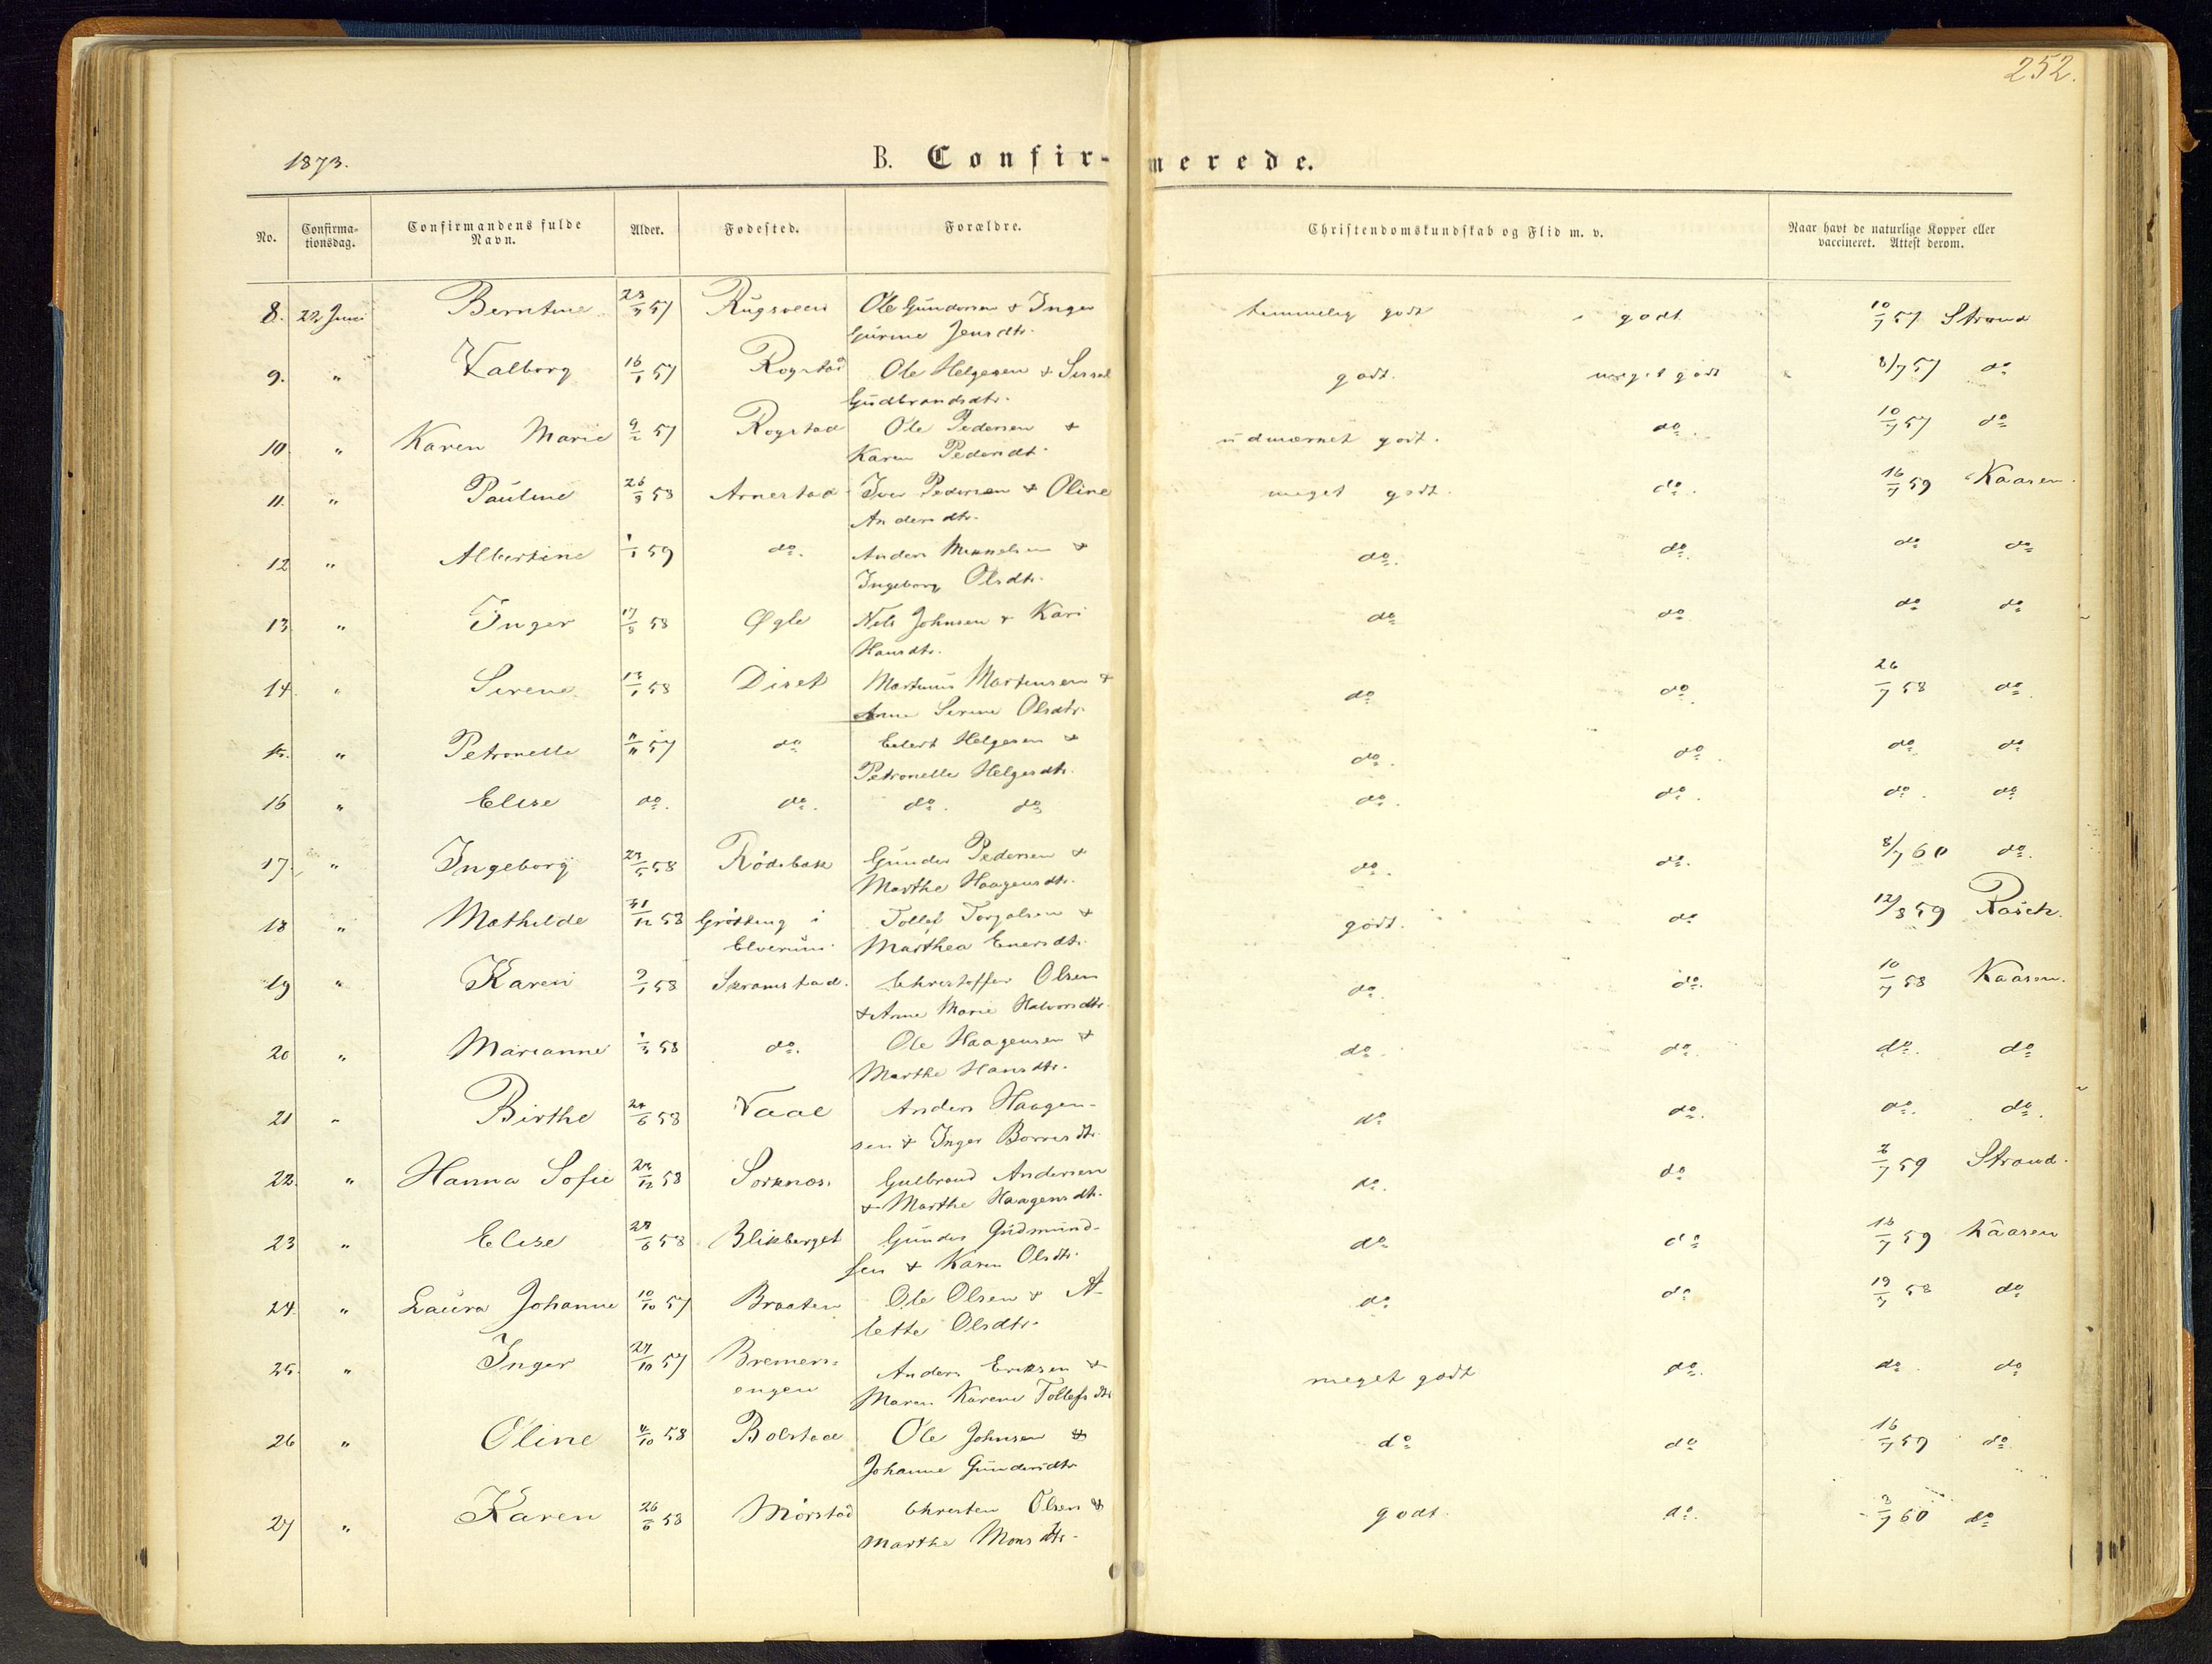 252.
1873.
B. Confirmerede.
No. Confirmationsdag. Confirmandens fulde Navn. Alder. Fødested. Forældre. Christendomskundskab og Flid m. v. Naar havt de naturlige Kopper eller vaccineret. Attest derom.
8. 22 Juni Berntine 57 Rugsveen Ole Gundersen & Inger temmelig godt godt 10/7 57 Strand
Gurine Jensdtr.
9. " Valborg 16/1 57 Rogstad Ole Helgesen & Sissel godt. meget godt 8/7 57 do
Gudbrandsdtr.
10. " Karen Marie 9/2 57 Rogstad Ole Pedersen & udmærket godt. do. 10/7 57 do
Karen Pedersdt.
11. " Pauline 26/3 58 Arnestad Iver Pedersen & Oline meget godt. do. 16/7 59 Kaasen.
Andersdtr.
12 " Albertine 1/1 59 do. Anders Mikkelsen & do. do. do do
Ingeborg Olsdtr.
13 " Inger 17/8 58 Øgle Nels Johnsen & Kari do do do do
Hansdtr.
14. " Sirene 13/1 58 Diset Martinus Martinsen & do do. 26/7 58 do
Anne Sirine Olsdtr.
15. " Petronelle 11/11 57 do Edert Helgesen & do. do. do do
Petronelle Helgesdtr.
16 " Elise do. do. do. do do. do. do. do
17. " Ingeborg 58 Rödsbak Gunder Pedersen & do. do. 8/7 60 do.
Marthe Haagensdtr.
18 " Mathilde 31/12 58 Grötting i Tollef Torgalsen & godt. do 12/8 59 Rasch.
Elverum. Marthea Enersdtr.
19 " Karen 9/1 58 Skramstad. Christoffer Olsen do. do. 10/7 58 Kaasen.
& Anne Marie Halvorsdtr.
20 " Marianne 1/3 58 do. Ole Haagensen & do. do. do. do
Marthe Hansdtr.
21 " Birthe 24/6 58 Vaal Anders Haagen- do do. do. do.
sen & Inger Borresdtr.
22. " Hanna Sofie 58 Sorknæs. Gulbrand Andersen do. do 2/7 59 Strand.
& Marthe Haagensdtr.
23 " Elise 28/6 58 Blikberget Gunder Gudmund- do do 16/7 59 Kaasen
sen & Karen Olsdtr.
24. " Laura Johanne 10/10 57 Braaten Ole Olsen & A- do do 19/7 58 do
lette Olsdtr.
25. " Inger 57 Bremers- Anders Eriksen & meget godt do. do. do
engen Maren Karine Tollefsdtr
26 " Oline 4/10 58 Bolstad Ole Johnsen & do do 16/7 59 do.
Johanne Gundersdtr
27 " Karen 26/6 58 Mørstad Christen Olsen & godt. do. 60 do
Marthe Monsdtr.